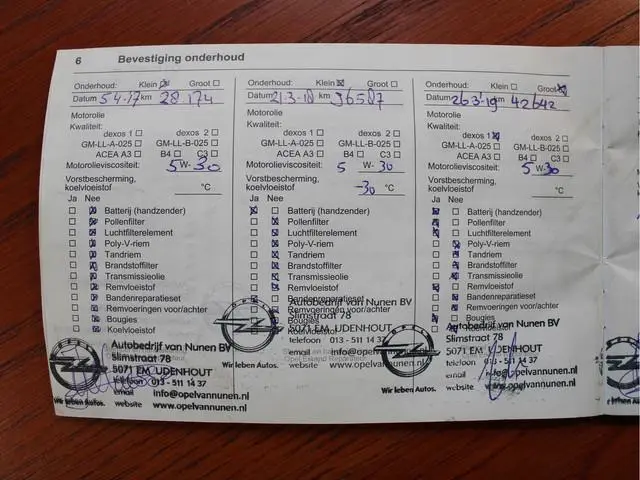 6 Bevestiging onderhoud
Onderhoud: Klein ☒ Groot ☐
Datum 5-4-17 km 28.174
Motorolie
Kwaliteit:
dexos 1 ☐ dexos 2 ☐
GM-LL-A-025 ☐ GM-LL-B-025 ☐
ACEA A3 ☐ B4 ☐ C3 ☐
Motorolieviscositeit: 5 W- 30
Vorstbescherming,
koelvloeistof °C
Ja Nee
☐ ☒ Batterij (handzender)
☐ ☒ Pollenfilter
☐ ☒ Luchtfilterelement
☐ ☒ Poly-V-riem
☐ ☒ Tandriem
☐ ☒ Brandstoffilter
☐ ☒ Transmissieolie
☐ ☒ Remvloeistof
☐ ☒ Bandenreparatieset
☐ ☒ Remvoeringen voor/achter
☐ ☒ Bougies
☐ ☒ Koelvloeistof
OPEL
Autobedrijf van Nunen BV
Slimstraat 78
5071 EM UDENHOUT
telefoon 013 - 511 14 37
email info@opelvannunen.nl
Wir leben Autos. website www.opelvannunen.nl
Onderhoud: Klein ☒ Groot ☐
Datum 21-3-18 km 36587
Motorolie
Kwaliteit:
dexos 1 ☐ dexos 2 ☐
GM-LL-A-025 ☐ GM-LL-B-025 ☐
ACEA A3 ☐ B4 ☐ C3 ☐
Motorolieviscositeit: 5 W- 30
Vorstbescherming,
koelvloeistof -30 °C
Ja Nee
☒ ☐ Batterij (handzender)
☐ ☒ Pollenfilter
☐ ☒ Luchtfilterelement
☐ ☒ Poly-V-riem
☐ ☒ Tandriem
☐ ☒ Brandstoffilter
☐ ☒ Transmissieolie
☐ ☒ Remvloeistof
Bandenreparatieset
Remvoeringen voor/achter
Bougies
Koelvloeistof
OPEL
Autobedrijf van Nunen BV
Slimstraat 78
5071 EM UDENHOUT
telefoon 013 - 511 14 37
email info@opelvannunen.nl
Wir leben Autos. website www.opelvannunen.nl
Onderhoud: Klein ☐ Groot ☒
Datum 26-3-19 km 42642
Motorolie
Kwaliteit:
dexos 1 ☒ dexos 2 ☐
GM-LL-A-025 ☐ GM-LL-B-025 ☐
ACEA A3 ☐ B4 ☐ C3 ☐
Motorolieviscositeit: 5 W- 30
Vorstbescherming,
koelvloeistof °C
Ja Nee
☒ ☐ Batterij (handzender)
☒ ☐ Pollenfilter
☒ ☐ Luchtfilterelement
☐ ☒ Poly-V-riem
☐ ☒ Tandriem
☐ ☒ Brandstoffilter
☐ ☒ Transmissieolie
☒ ☐ Remvloeistof
☐ ☒ Bandenreparatieset
☐ ☒ Remvoeringen voor/achter
☒ ☐ Bougies
☐ ☒ Koelvloeistof
OPEL
Autobedrijf van Nunen BV
Slimstraat 78
5071 EM UDENHOUT
telefoon 013 - 511 14 37
email info@opelvannunen.nl
website www.opelvannunen.nl